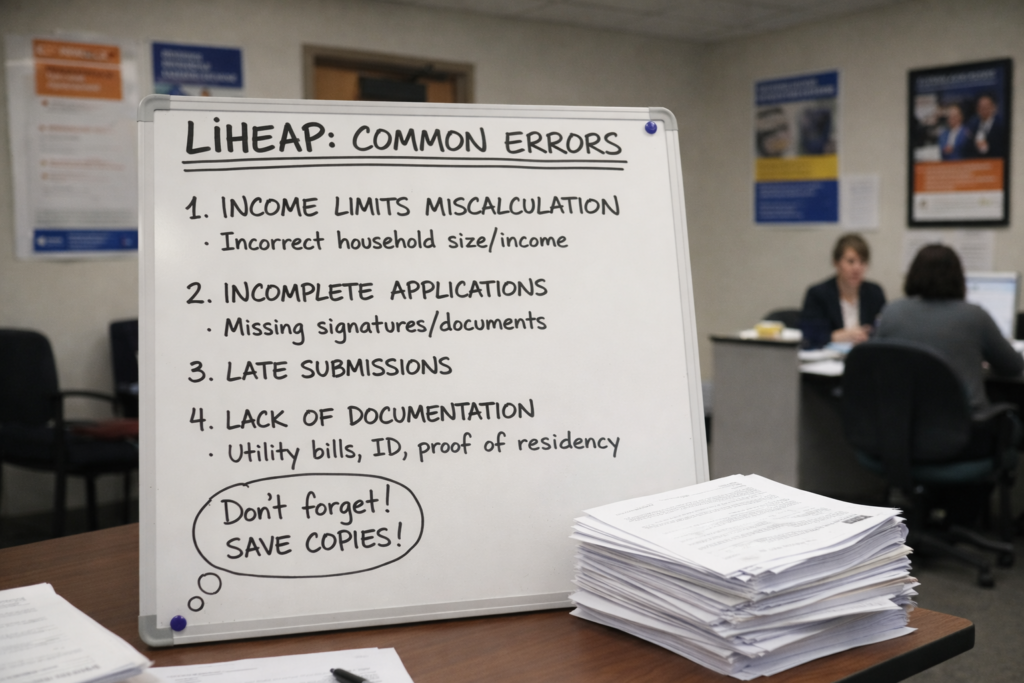 LiHEAP: COMMON ERRORS
1. INCOME LIMITS MISCALCULATION
· Incorrect household size/income
2. INCOMPLETE APPLICATIONS
· Missing signatures/documents
3. LATE SUBMISSIONS
4. LACK OF DOCUMENTATION
· Utility bills, ID, proof of residency
Don't forget!
SAVE COPIES!